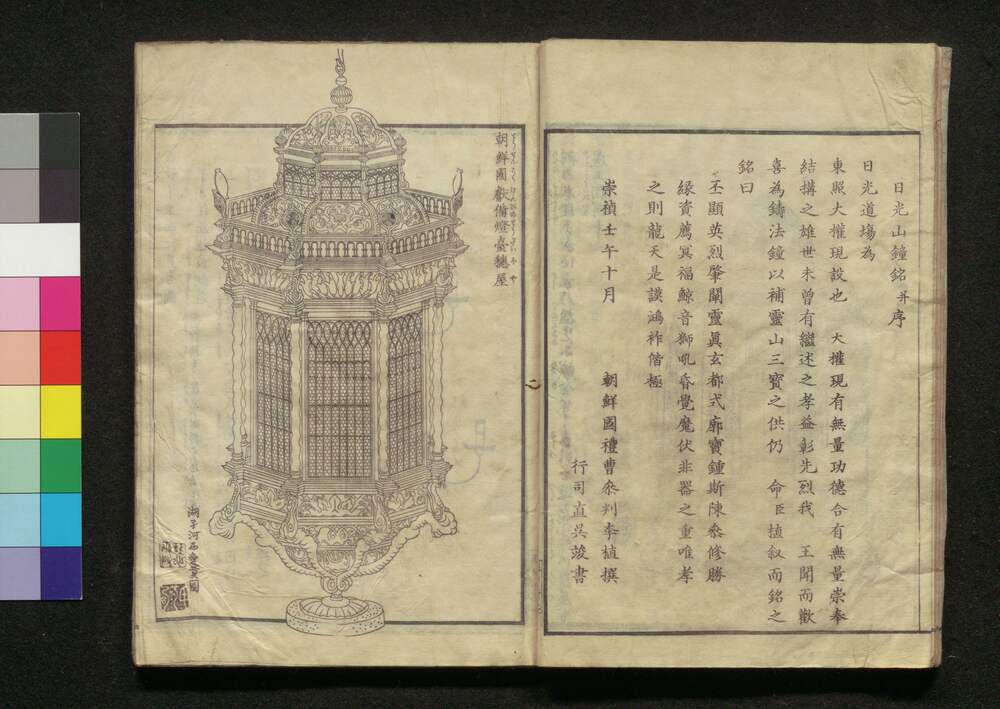 日光山鐘銘 并序
日光道場為
東照大權現設也 大權現有無量功德合有無量崇奉
結搆之雄世未曾有繼述之孝益彰先烈我 王聞而歡
喜為鑄法鐘以補靈山三寶之供仍 命臣植叙而銘之
銘曰
丕顯英烈肇闡靈眞玄都式廓寶鍾斯陳參修勝
緣資薦冥福鯨音獅吼昏覺魔伏非器之重唯孝
之則龍天是護鴻祚偕極
崇禎壬午十月 朝鮮國禮曹參判李植撰
行司直吳竣書
朝鮮國獻備燈臺穗屋